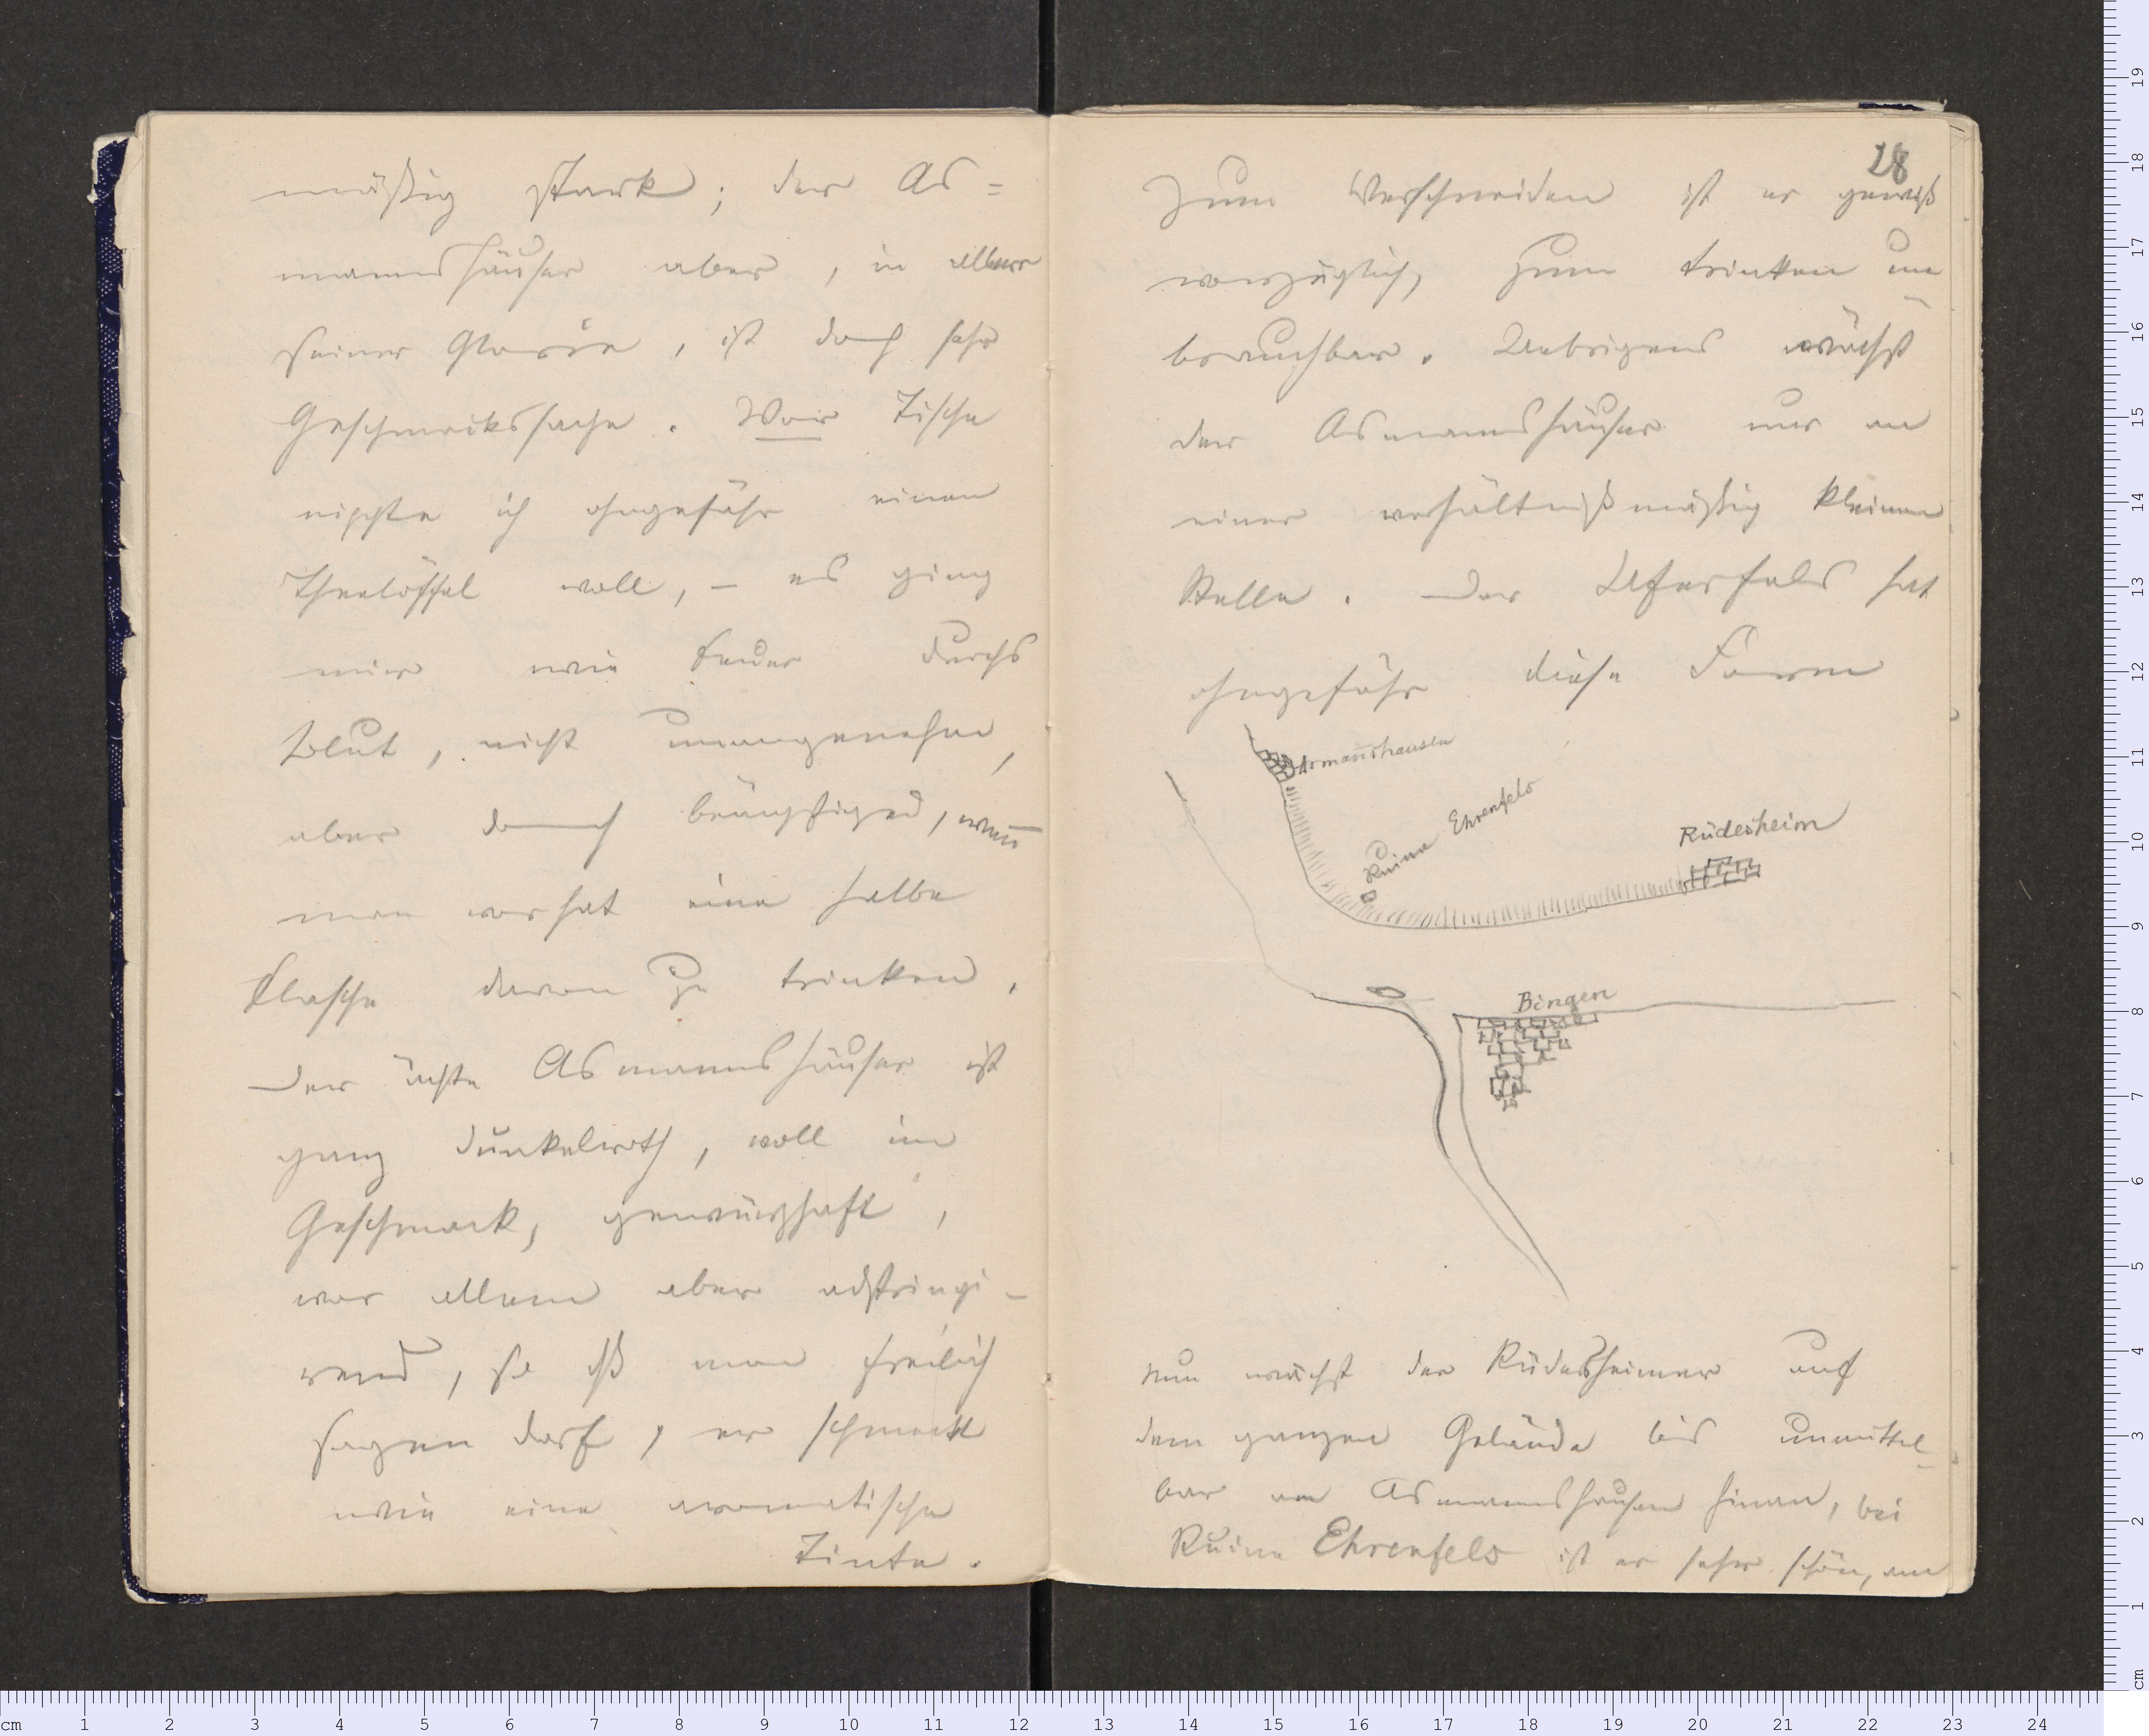 mäßig stark; der As=
mannshäuser aber, in aller
seiner Glorie, ist doch sehr
Geschmackssache. Vor Tische
nippte ich ohngefähr einen
Theelöffel voll, – es ging
mir wie Feuer durchs
Blut, nicht unangenehm,
aber doch beängstigend, wenn̄
man vorhat eine halbe
Flasche davon zu trinken.
Der ächte Asmannshäuser ist
ganz dunkelroth, voll im
Geschmack, gewürzhaft,
vor allem aber adstringi-
rend, so daß man freilich
sagen darf, er schmeckt
wie eine aromatische
Tinte.
28
Zum Verschneiden ist er gewiß
vorzüglich, zum trinken un
brauchbar. Uebrigens wächst
der Asmannshäuser nur an
einer verhältnißmäßig kleinen
Stelle. Der Uferfels hat
ohngefähr diese Form
Asman̄shausen
Ruine Ehrenfels
Rüdesheim
Bingen
nun wächst der Rüdesheimer auf
dem ganzen Gelände bis unmittel-
bar an Asmannshausen hinan, bei
Ruine Ehrenfels ist er sehr schön, am